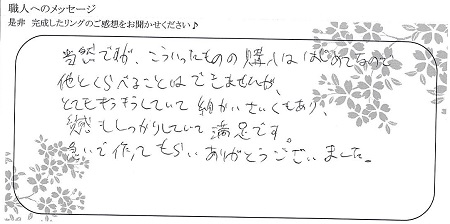 職人へのメッセージ
是非 完成したリングのご感想をお聞かせください♪
当然ですが、こういったものの購入ははじめてなので
他とくらべることはできませんが、
とてもキラキラしていて細かいさいくもあり、
感もしっかりしていて満足です。
急いで作ってもらいありがとうございました。